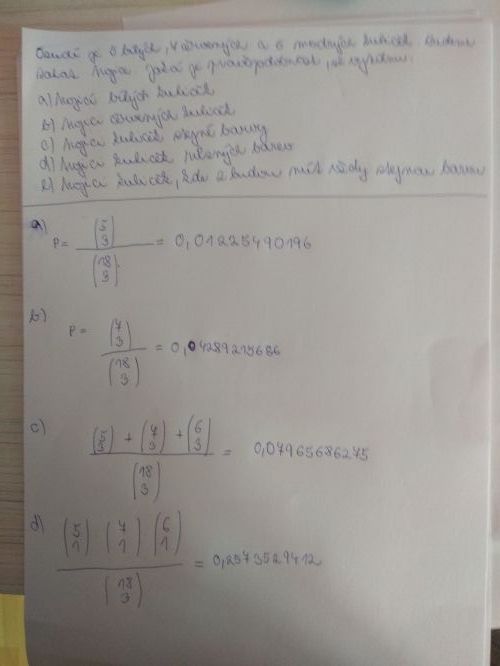 je 5 bílých, 7 červených a 6 modrých kuliček. Budem
trojici jaká je pravděpodobnost, že
a) trojici bílých kuliček
b) trojici červených kuliček
c) trojici kuliček stejné barvy
d) trojici kuliček různých barev
e) trojici kuliček, kde 2 budou mít vždy stejnou barvu
a) P = (5 3) / (18 3) = 0,01225490196
b) P = (7 3) / (18 3) = 0,04289215686
c) (5 3) + (7 3) + (6 3) / (18 3) = 0,07965686275
d) (5 1) (7 1) (6 1) / (18 3) = 0,2573529412